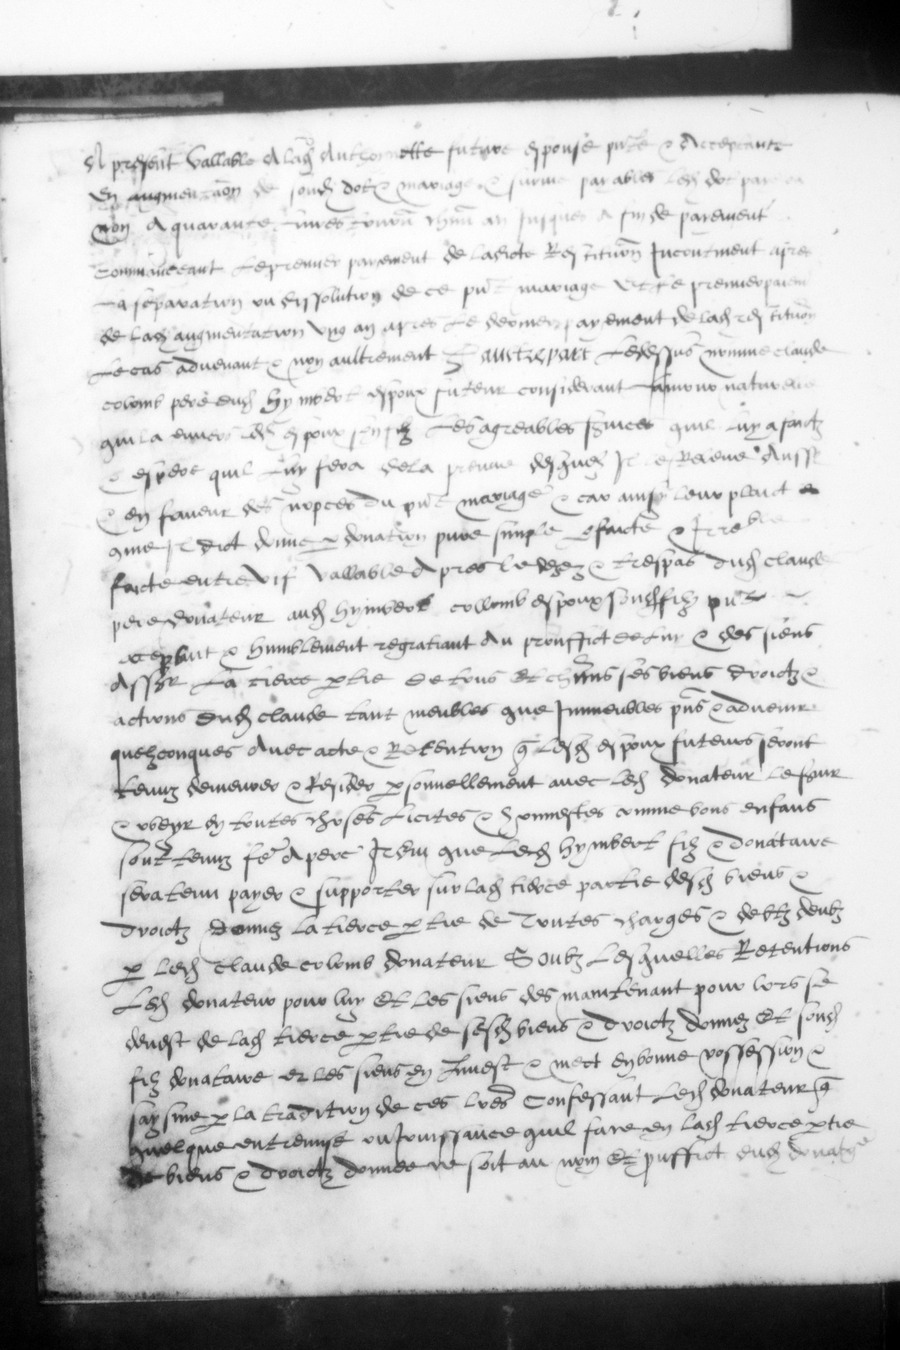 A present vallable A lad Anthoinette future espouse pnte & Acceptante
En augmentaon de sond dot & mariage & survie payables led dot
non A quarante livres tourn chun an Jusques A fin de payement
Commancant Le premier payement de ladicte Restitution Incontinent apres
La separation ou dissolution de ce pnt mariage Et Le premier paiem
de lad augmentation ung an apres Le dernier payement de lad restitution
Le cas advenant & non aultrement Et aultrepart Ledessus nomme claude
colomb pere dud Hymbert espoux futeur considerant Lamour naturelle
quil a envers led espoux son filz Les agreables services quil Luy a faictz
& espere quil Luy fera de la preuve desquelz Il le Releve Aussi
& en faveur des nopces du pnt mariage & car ainsy leur plaict
que Il dict donne par donation pure simple pfaicte & Irre
faicte entre vif vallable Apres le deces & trespas dud claude
pere donateur aud hymbert collomb espoux sond filz pnt
acceptant & humblement regratiant Au prouffict de Luy & des siens
Assr La tierce ptie de tous Et chuns ses biens droictz &
actions dud claude tant meubles que Immeubles pns & advenir
quelzconques Avec acte & Retention q Lesd espoux futeurs seront
tenuz demeurer & Resider psonnellement avec led donateur Le servir
& obeyr en toutes choses Licites & honnestes comme bons enfans
sont tenuz fe A pere Item que Led hymbert filz & donataire
sera tenu payer & supporter sur lad tierce partie desd biens &
droictz donnez la tierce ptie de Toutes charges & debtz deubz
p led Claude colomb donateur Soubz Lesquelles Retentions
Led donateur pour luy Et Les siens des maintenant pour lors se
devest de lad tierce ptie de sesd biens & droictz donnez Et sond
filz donataire et les siens en Invest & mect en bonne possession &
saysine p la tradition de ces lres Confessant Led donateur q
quelque entremise ou Jouissance quil face en lad tierce ptie
de biens & droictz donnee ce soit au nom Et puffict dud donatre